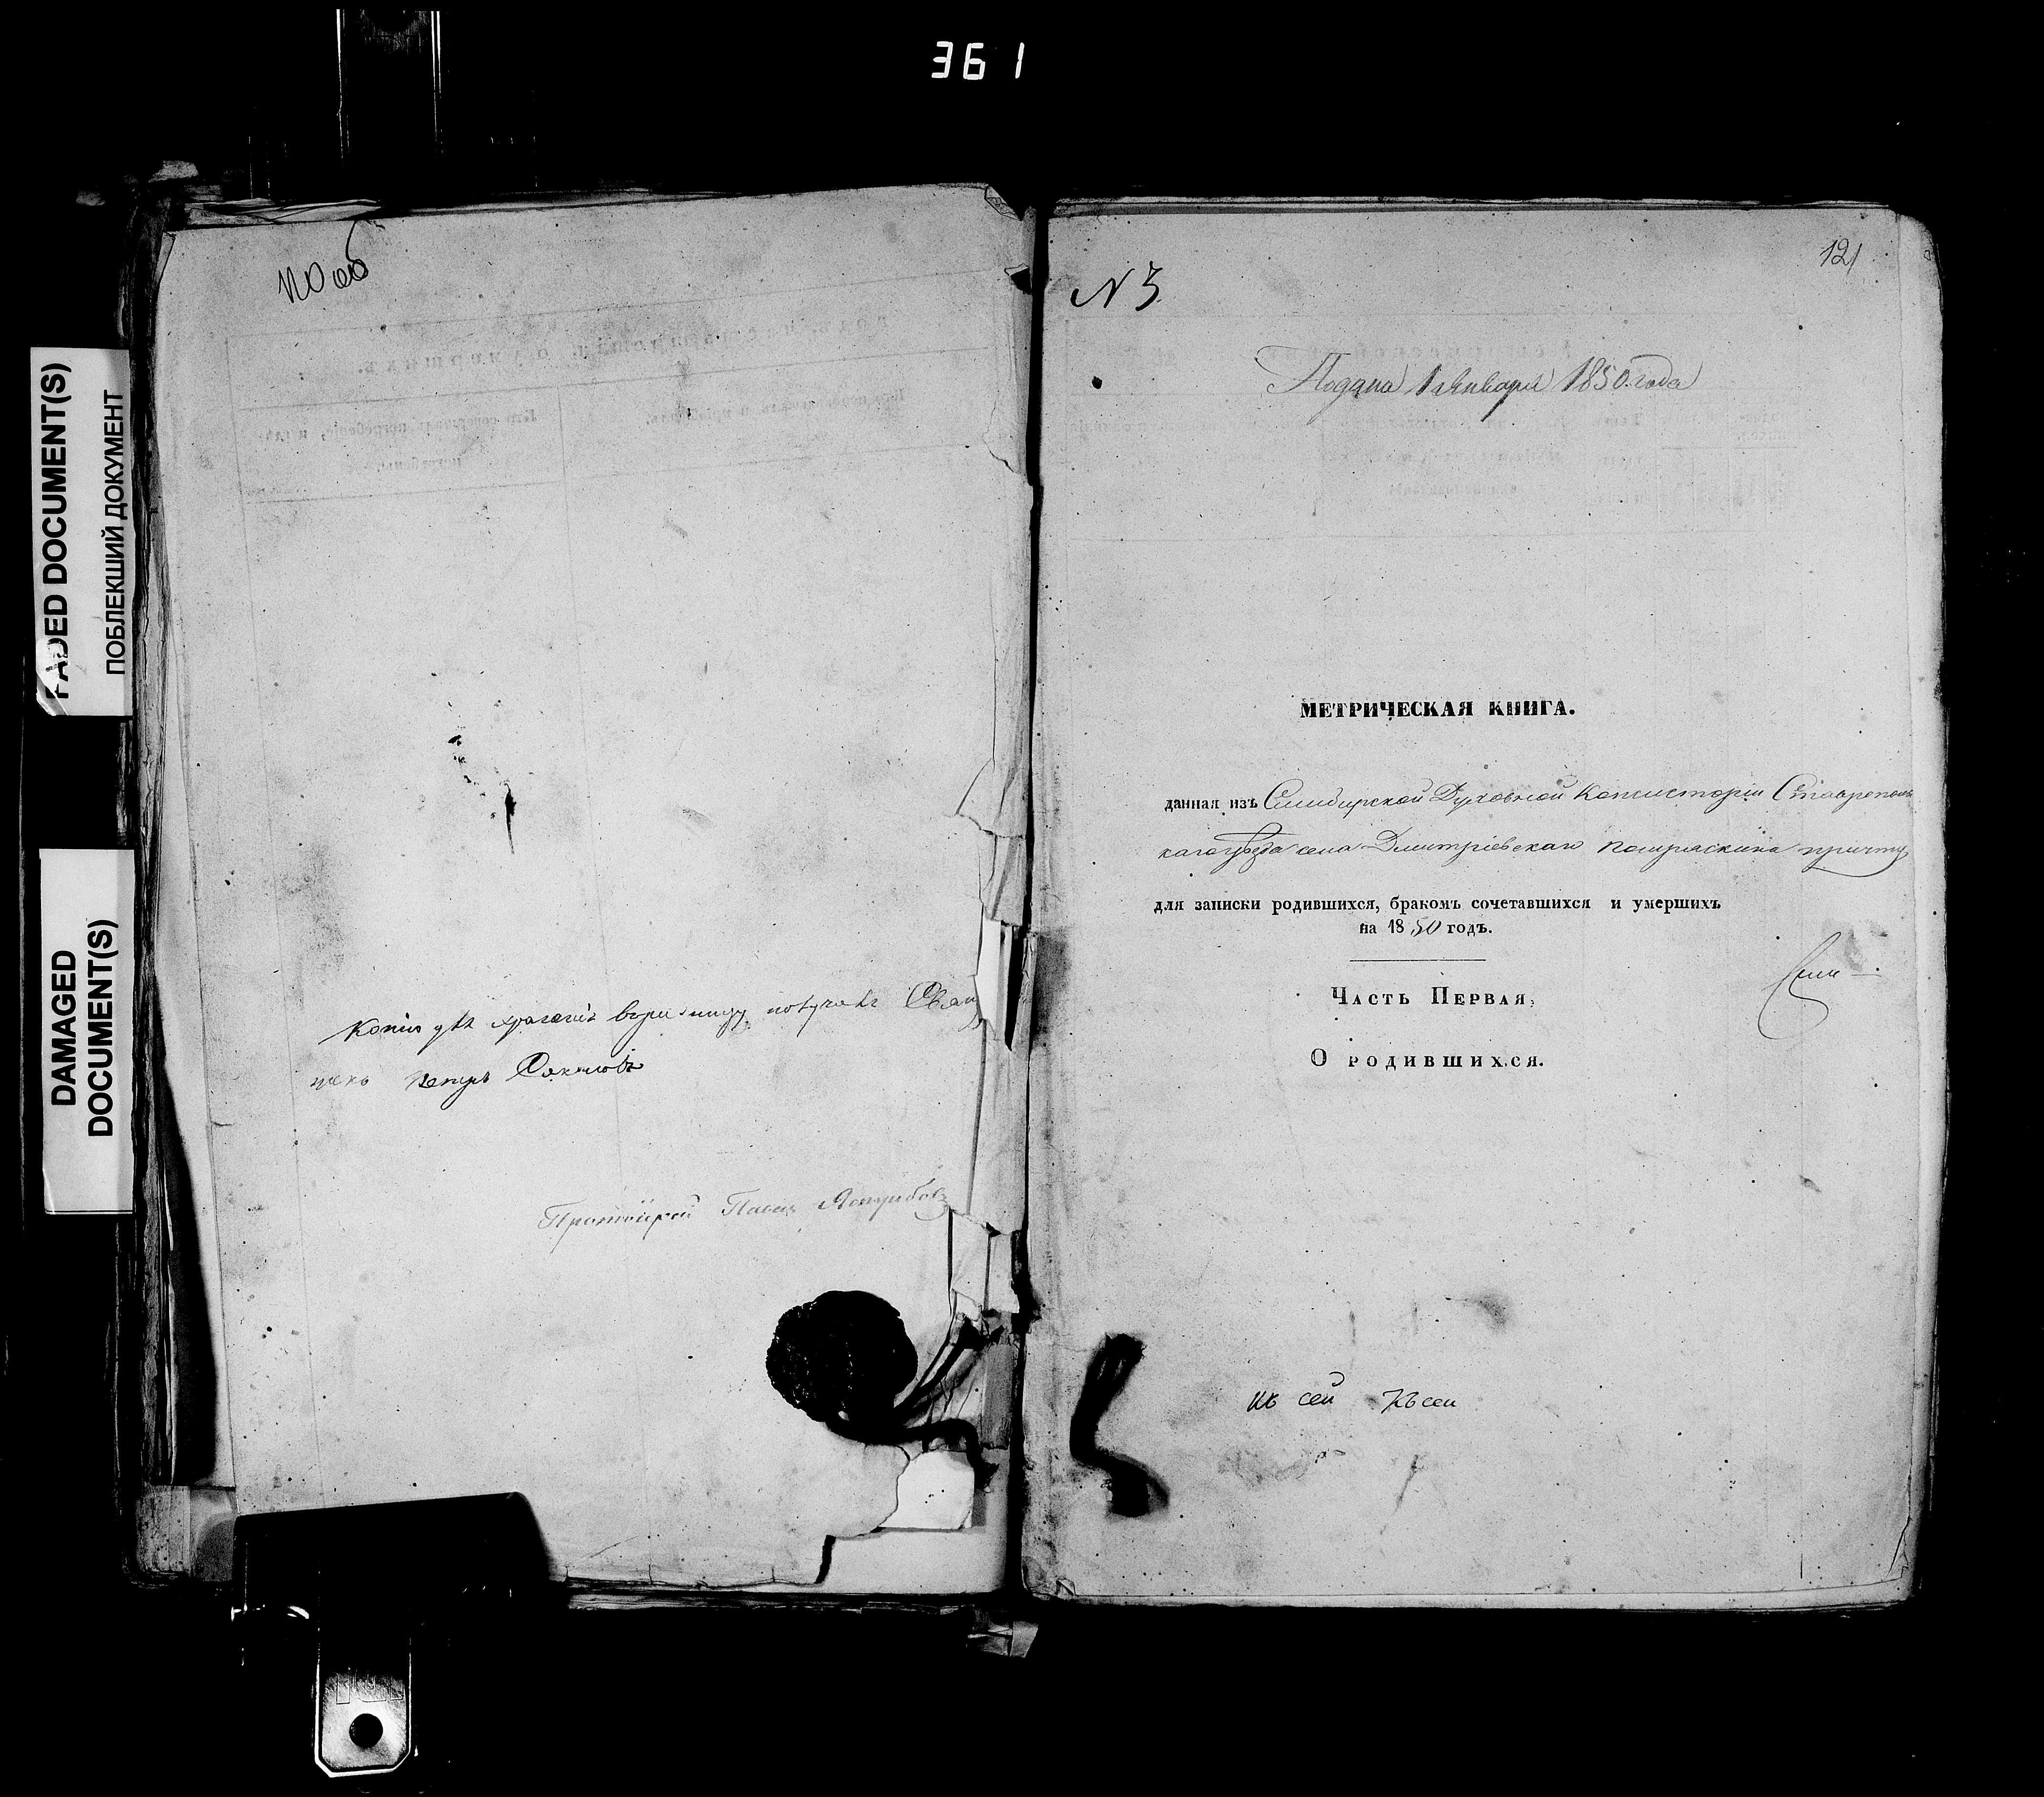 361
FADED DOCUMENT(S)
ПОБЛЕКШИЙ ДОКУМЕНТ
DAMAGED
DOCUMENT(S)
120 об
Копію для храненія въ ризницу получилъ Свящ
Петръ
Протоіерей Павелъ Ястребовъ
121
N 3
Подана 1 января 1850 года
МЕТРИЧЕСКАЯ КНИГА.
данная изъ Симбирской Духовной Консисторіи Ставрополь
скаго уѣзда села Дмитріевскаго причту
для записки родившихся, бракомъ сочетавшихся и умершихъ
на 1850 годъ.
Часть Первая,
О родившихся.
къ сей къ сей